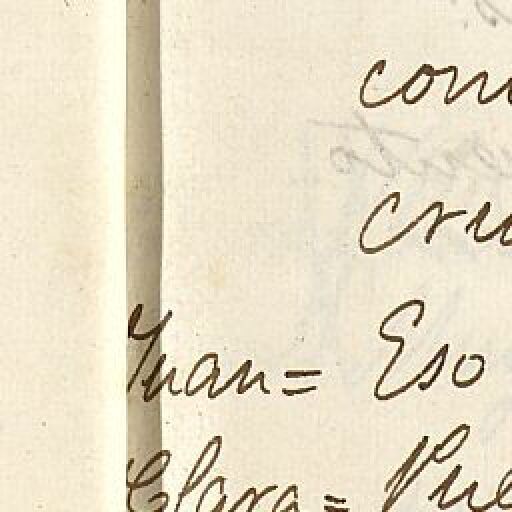 com
cru
Juan= Eso
Clara= Pue